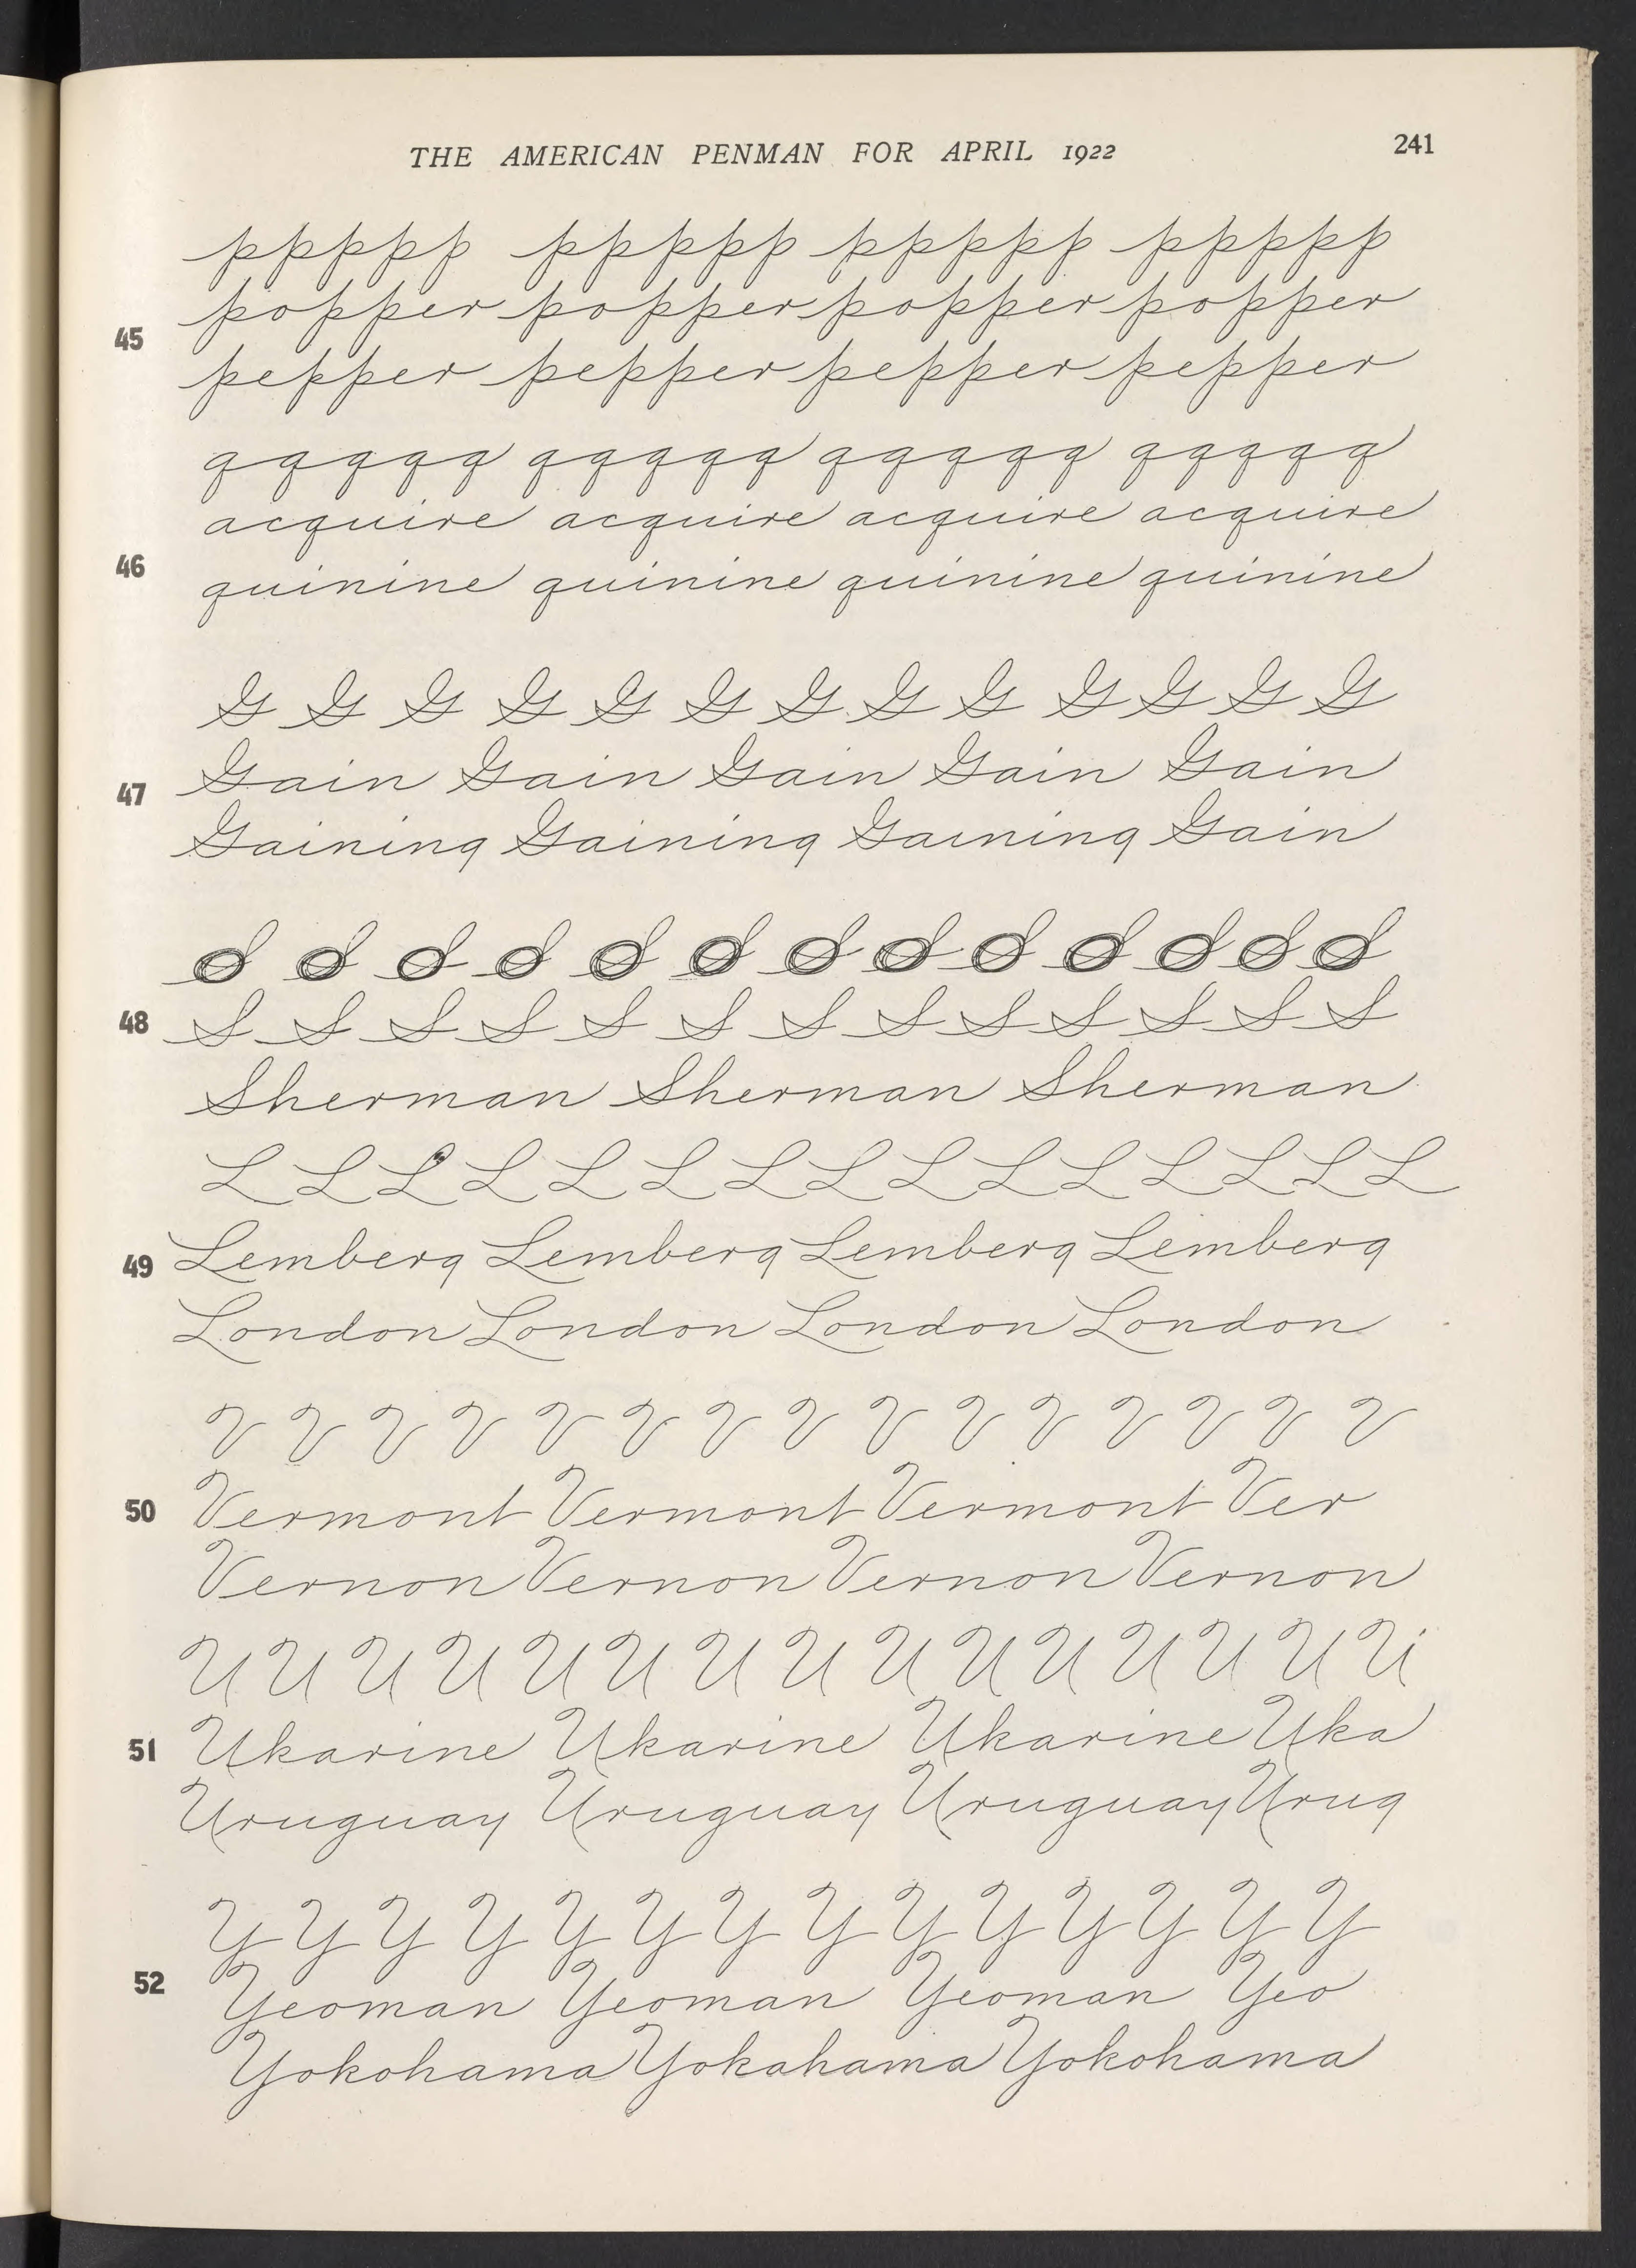 THE AMERICAN PENMAN FOR APRIL 1922 241
ppppp ppppp ppppp ppppp
popper popper popper popper
45
pepper pepper pepper pepper
qqqqq qqqqq qqqqq qqqqq
acquire acquire acquire acquire
46
quinine quinine quinine quinine
G G G G G G G G G G G G G
Gain Gain Gain Gain Gain
47
Gaining Gaining Gaining Gain
S S S S S S S S S S S S S
48 S S S S S S S S S S S S S
Sherman Sherman Sherman
L L L L L L L L L L L L L L L
49 Lemberg Lemberg Lemberg Lemberg
London London London London
V V V V V V V V V V V V V V V
50 Vermont Vermont Vermont Ver
Vernon Vernon Vernon Vernon
U U U U U U U U U U U U U U U
51 Ukarine Ukarine Ukarine Uka
Uruguay Uruguay Uruguay Urug
Y Y Y Y Y Y Y Y Y Y Y Y Y Y
52 Yeoman Yeoman Yeoman Yeo
Yokohama Yokahama Yokohama